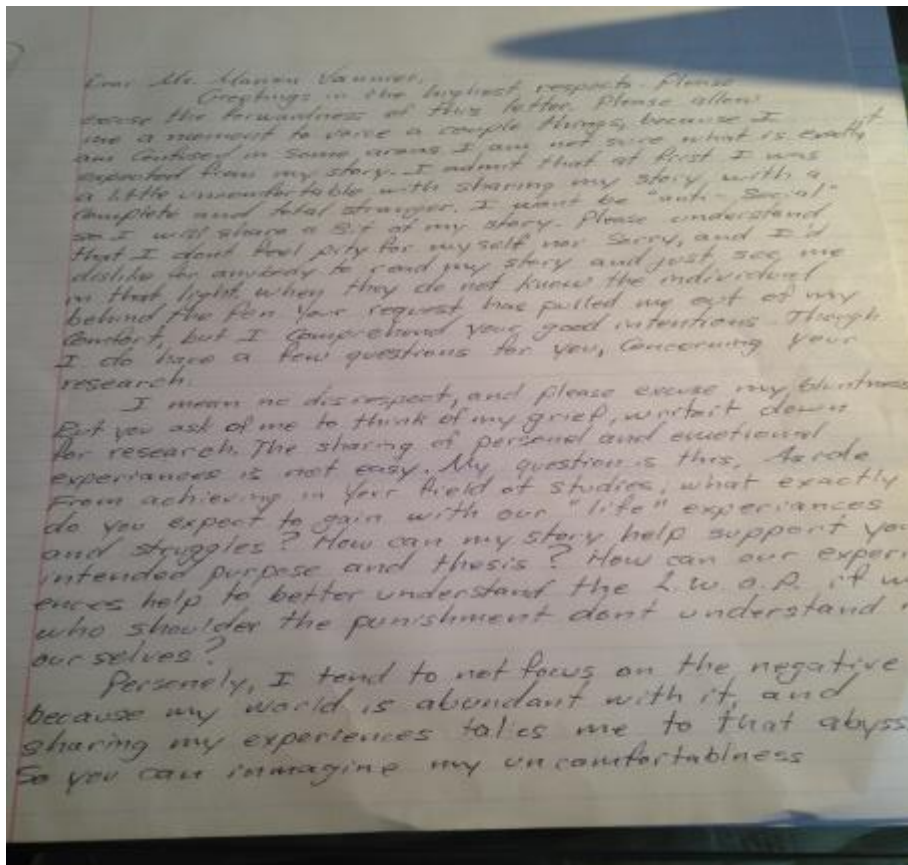 Dear Mr. Manon Vannier,
Greetings in the highest respects. Please
excuse the forwardness of this letter. Please allow
me a moment to voice a couple things, because I
am confused in some areas I am not sure what is exactly
expected from my story. I admit that at first I was
a little uncomfortable with sharing my story, with a
complete and total stranger. I wont be "anti-Social"
so I will share a bit of my story. Please understand
that I dont feel pity for myself nor Sorry, and I'd
dislike for anybody to read my story and just see me
in that light when they do not know the individual
behind the Pen Your request has pulled me out of my
comfort, but I Comprehend your good intentions. Though
I do have a few questions for you, Concerning your
research.
I mean no disrespect, and please excuse my bluntness
But you ask of me to think of my grief, write it down
for research. The sharing of personal and emotional
experiances is not easy. My question is this, Aside
From achieving in Your field of studies, what exactly
do you expect to gain with our "life" experiances
and struggles? How can my story help support you
intended purpose and thesis? How can our experi
ences help to better understand the L.W.O.P. if w
who shoulder the punishment dont understand
our selves?
Personely, I tend to not focus on the negative
because my world is abundant with it, and
sharing my experiences takes me to that abyss
So you can inmagine my uncomfortablness